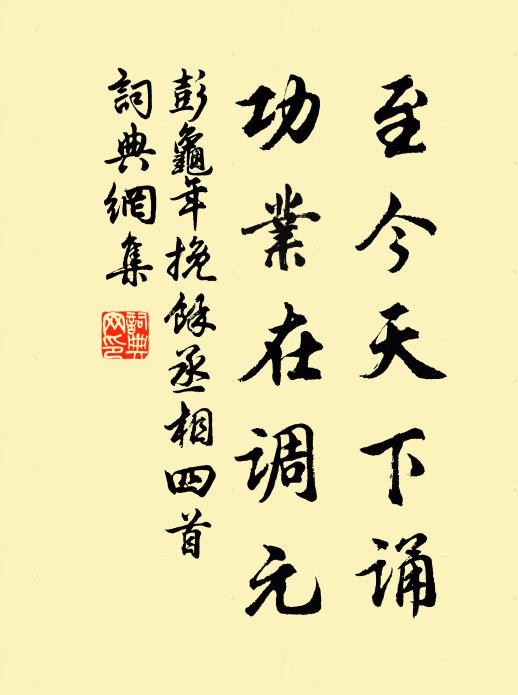 至今天下诵
功業在调元
彭龜年挽餘丞相四首
詞典網集
詞典
网印